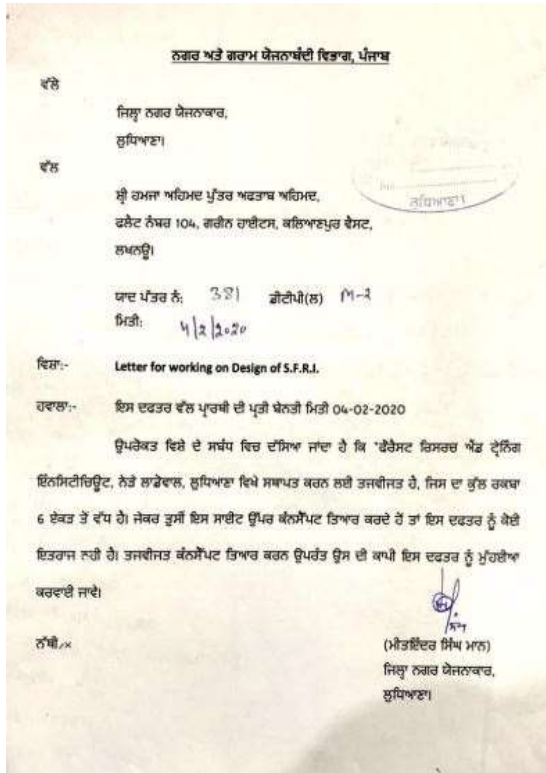 ਨਗਰ ਅਤੇ ਗਰਾਮ ਯੋਜਨਾਬੰਦੀ ਵਿਭਾਗ, ਪੰਜਾਬ
ਵੱਲੋਂ
ਜਿਲ੍ਹਾ ਨਗਰ ਯੋਜਨਾਕਾਰ,
ਲੁਧਿਆਣਾ।
ਵੱਲ
ਲੁਧਿਆਣਾ।
ਸ਼੍ਰੀ ਹਮਜਾ ਅਹਿਮਦ ਪੁੱਤਰ ਅਫਤਾਬ ਅਹਿਮਦ,
ਫਲੈਟ ਨੰਬਰ 104, ਗਰੀਨ ਹਾਈਟਸ, ਕਲਿਆਣਪੁਰ ਵੈਸਟ,
ਲਖਨਊ।
ਯਾਦ ਪੱਤਰ ਨੰ: 381 ਡੀਟੀਪੀ(ਲ) M-2
ਮਿਤੀ: 4/2/2020
ਵਿਸ਼ਾ:- Letter for working on Design of S.F.R.I.
ਹਵਾਲਾ:- ਇਸ ਦਫਤਰ ਵੱਲ ਪ੍ਰਾਰਥੀ ਦੀ ਪ੍ਰਤੀ ਬੇਨਤੀ ਮਿਤੀ 04-02-2020
ਉਪਰੋਕਤ ਵਿਸ਼ੇ ਦੇ ਸਬੰਧ ਵਿਚ ਦੱਸਿਆ ਜਾਂਦਾ ਹੈ ਕਿ "ਫੌਰੈਸਟ ਰਿਸਰਚ ਐਂਡ ਟ੍ਰੇਨਿੰਗ
ਇੰਨਸਿਟੀਚਿਊਟ, ਨੇੜੇ ਲਾਡੋਵਾਲ, ਲੁਧਿਆਣਾ ਵਿਖੇ ਸਥਾਪਤ ਕਰਨ ਲਈ ਤਜਵੀਜਤ ਹੈ, ਜਿਸ ਦਾ ਕੁੱਲ ਰਕਬਾ
6 ਏਕੜ ਤੋਂ ਵੱਧ ਹੈ। ਜੇਕਰ ਤੁਸੀਂ ਇਸ ਸਾਈਟ ਉੱਪਰ ਕੰਨਸੈੱਪਟ ਤਿਆਰ ਕਰਦੇ ਹੋਂ ਤਾਂ ਇਸ ਦਫਤਰ ਨੂੰ ਕੋਈ
ਇਤਰਾਜ ਨਹੀ ਹੈ। ਤਜਵੀਜਤ ਕੰਨਸੈੱਪਟ ਤਿਆਰ ਕਰਨ ਉਪਰੰਤ ਉਸ ਦੀ ਕਾਪੀ ਇਸ ਦਫਤਰ ਨੂੰ ਮੁੱਹਈਆ
ਕਰਵਾਈ ਜਾਵੇ।
ਨੱਥੀ/×
(ਮੀਤਇੰਦਰ ਸਿੰਘ ਮਾਨ)
ਜਿਲ੍ਹਾ ਨਗਰ ਯੋਜਨਾਕਾਰ,
ਲੁਧਿਆਣਾ।